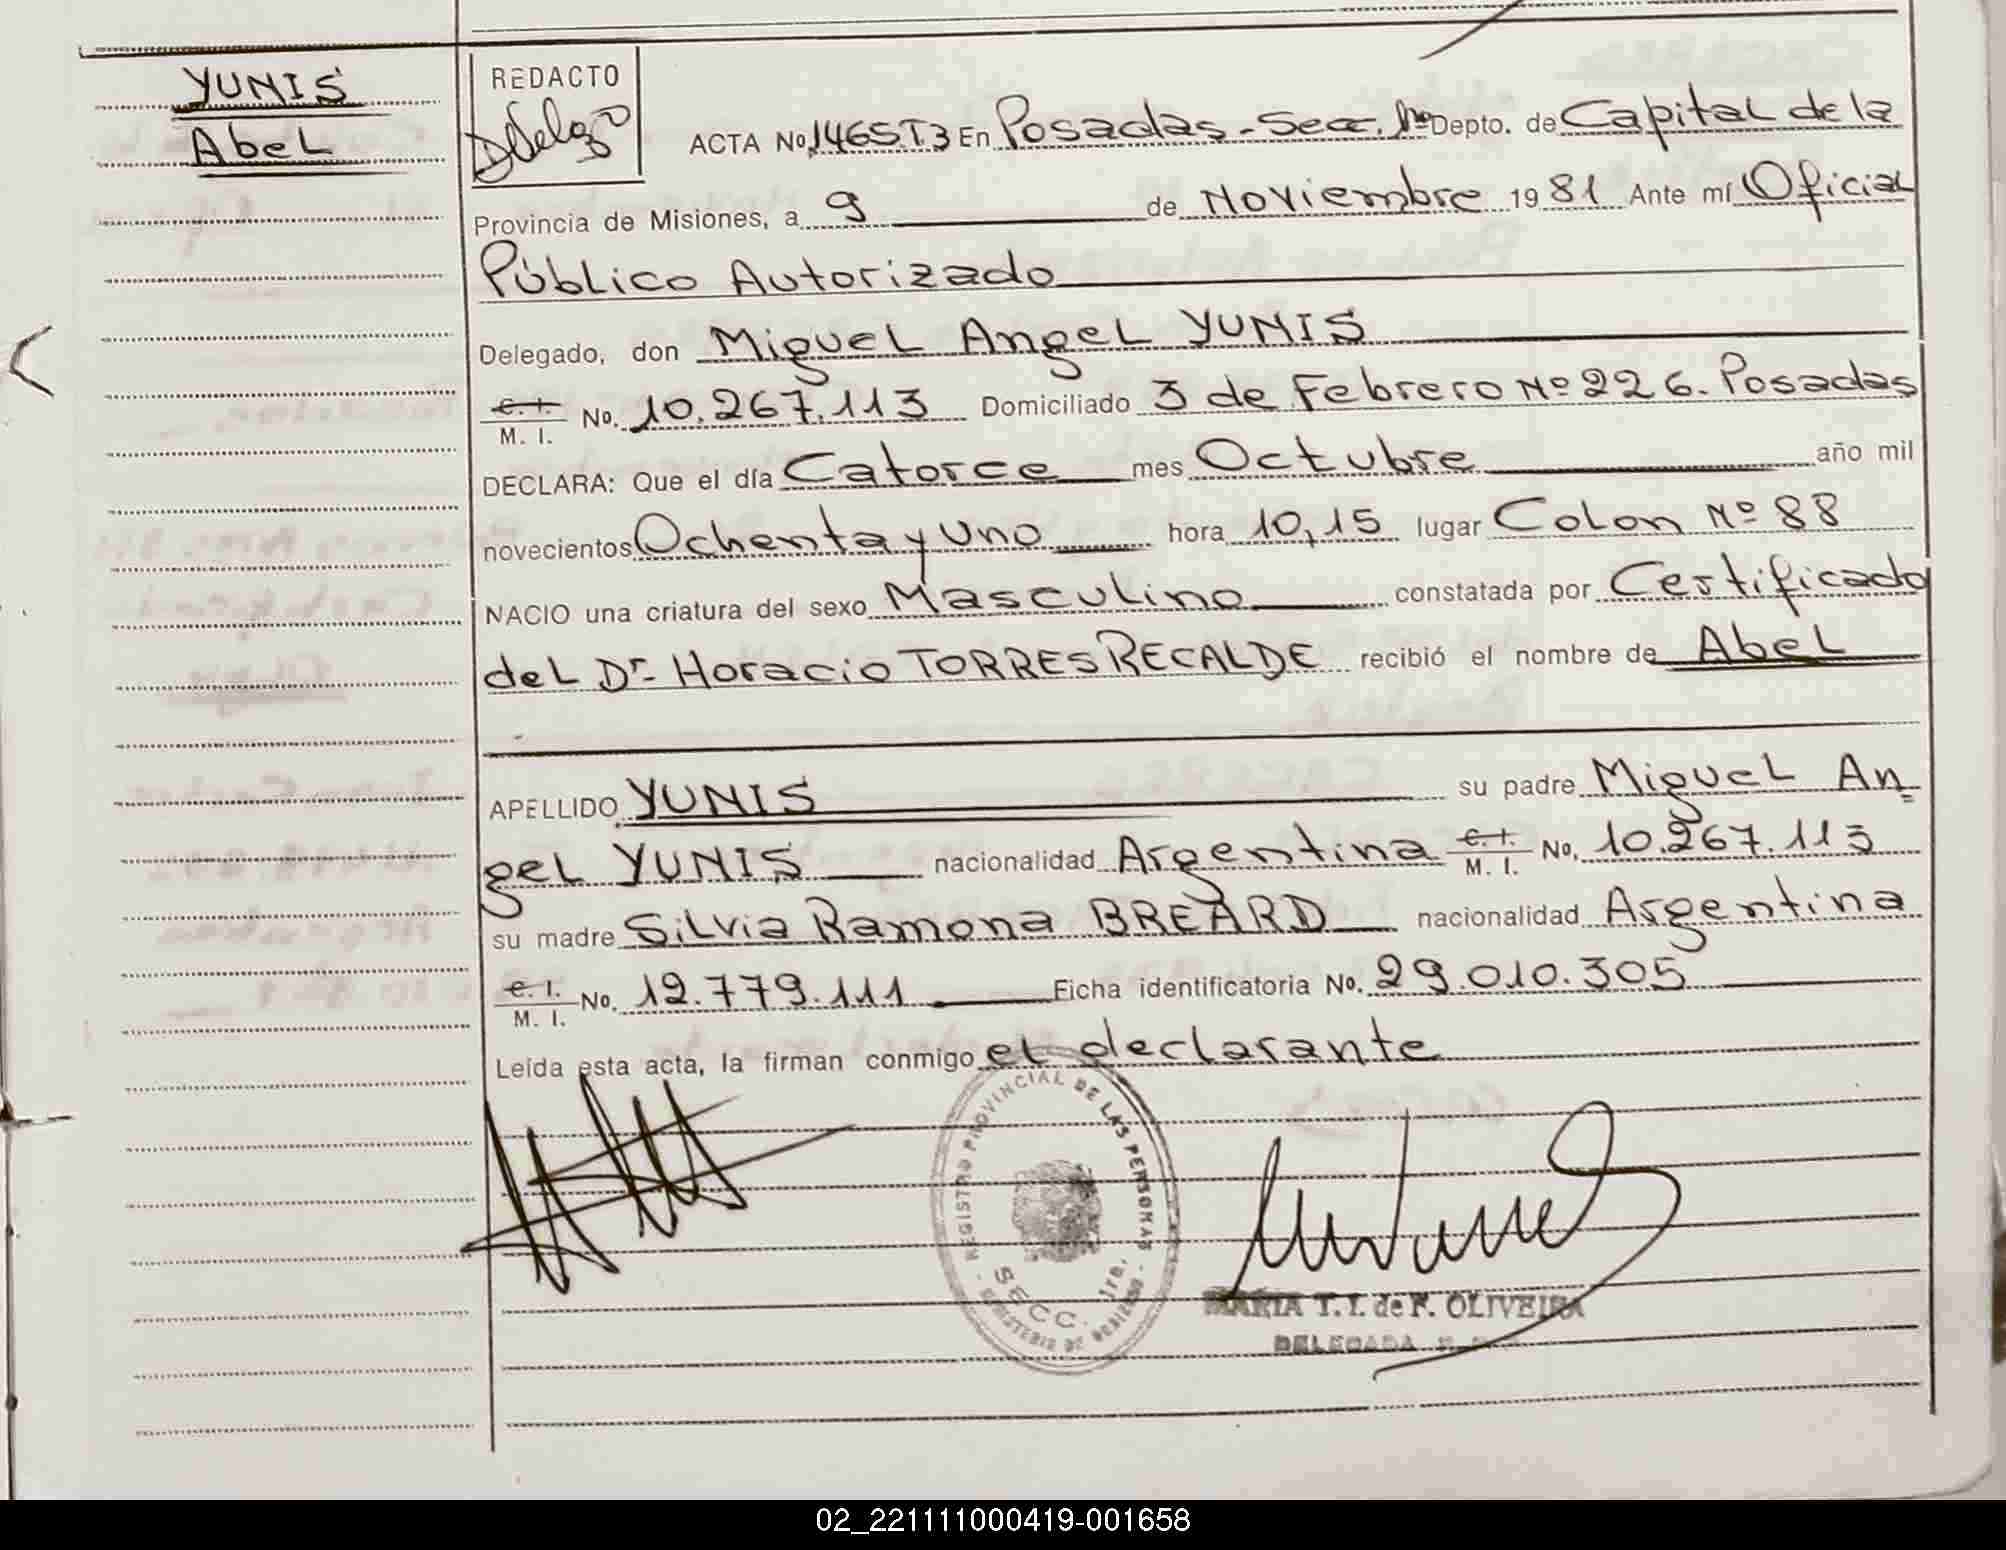 YUNIS
Abel
REDACTO
Delegado
ACTA No. 1465.T3 En Posadas - Secc. 1ra Depto. de Capital de la
Provincia de Misiones, a 9 de Noviembre 1981 Ante mí Oficial
Público Autorizado
Delegado, don Miguel Angel YUNIS
C. I. / M. I. No. 10.267.113 Domiciliado 3 de Febrero Nº 226. Posadas
DECLARA: Que el día Catorce mes Octubre año mil
novecientos Ochenta y Uno hora 10,15 lugar Colon Nº 88
NACIO una criatura del sexo Masculino constatada por Certificado
del Dr. Horacio TORRES RECALDE recibió el nombre de Abel
APELLIDO YUNIS su padre Miguel An
gel YUNIS nacionalidad Argentina C. I. / M. I. No. 10.267.113
su madre Silvia Ramona BREARD nacionalidad Argentina
C. I. / M. I. No. 12.779.111 Ficha identificatoria No. 29.010.305
Leída esta acta, la firman conmigo el declarante
REGISTRO PROVINCIAL DE LAS PERSONAS
SECC. 1ra.
MINISTERIO DE GOBIERNO
MARIA T. I. de F. OLIVEIRA
DELEGADA
02_221111000419-001658